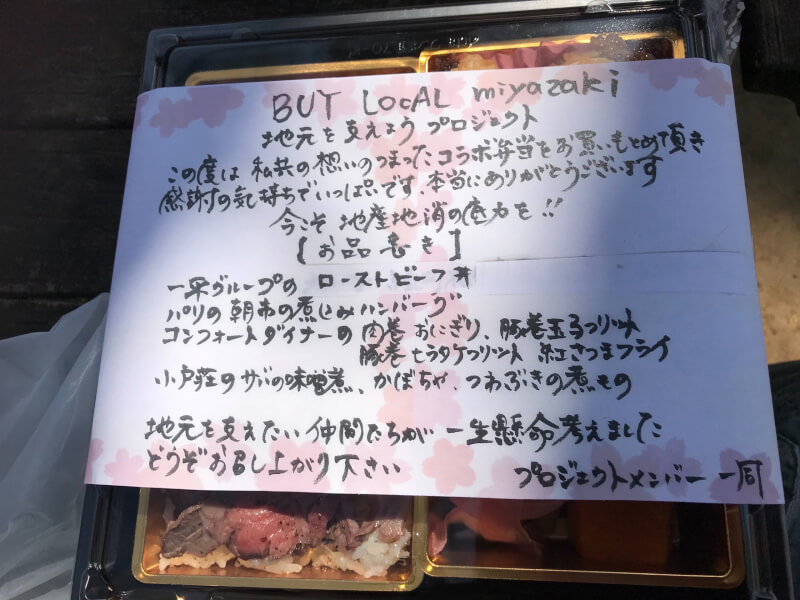 BUY LOCAL miyazaki
地元を支えよう プロジェクト
この度は 私共の想いのつまったコラボ弁当をお買いもとめ頂き
感謝の気持ちでいっぱいです。本当にありがとうございます
今こそ 地産地消の底力を!!
[お品書き]
一平グループの ローストビーフ丼
パリの朝市の煮込みハンバーグ
コンフォートダイナーの 肉巻おにぎり、豚巻玉ネフリット
豚巻ヒラタケフリット 紅さつまフライ
小戸荘のサバの味噌煮、かぼちゃ、つわぶきの煮もの
地元を支えたい仲間たちが 一生懸命考えました
どうぞお召し上がり下さい
プロジェクトメンバー 一同